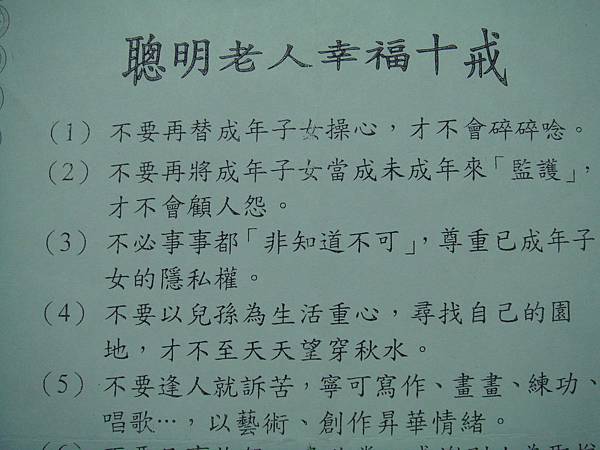 聰明老人幸福十戒
(1) 不要再替成年子女操心，才不會碎碎唸。
(2) 不要再將成年子女當成未成年來「監護」，
才不會顧人怨。
(3) 不必事事都「非知道不可」，尊重已成年子
女的隱私權。
(4) 不要以兒孫為生活重心，尋找自己的園
地，才不至天天望穿秋水。
(5) 不要逢人就訴苦，寧可寫作、畫畫、練功、
唱歌…，以藝術、創作昇華情緒。